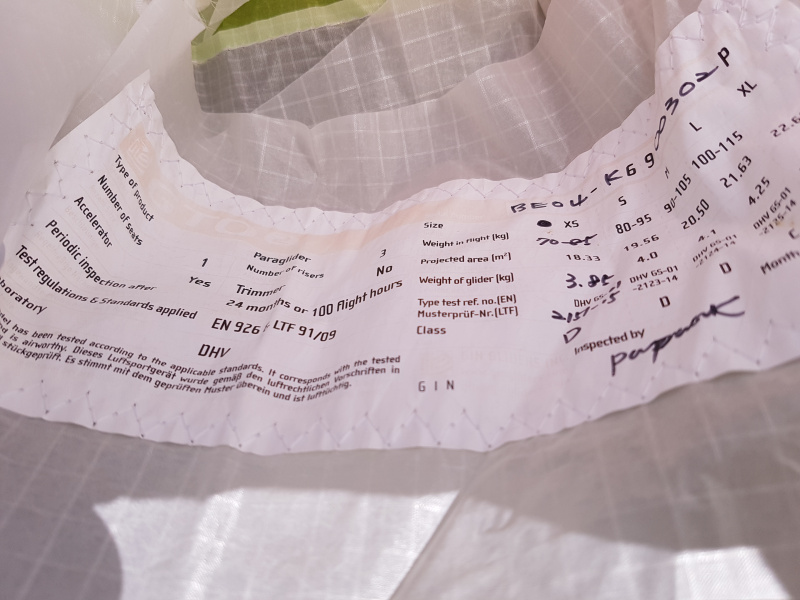 BE04-K69 00302P
Type of product Paraglider
Number of seats 1 Number of risers 3
Accelerator Yes Trimmer No
Periodic inspection after 24 months or 100 flight hours
Test regulations & Standards applied EN 926 / LTF 91/09
boratory DHV
has been tested according to the applicable standards. It corresponds with the tested
is airworthy. Dieses Luftsportgerät wurde gemäß den luftrechtlichen Vorschriften in
stückgeprüft. Es stimmt mit dem geprüften Muster überein und ist lufttüchtig.
Size XS S M L XL
Weight in flight (kg) 70-85 80-95 90-105 100-115
Projected area (m²) 18.33 19.56 20.50 21.63 22.6
Weight of glider (kg) 3.85 4.0 4.1 4.25
Type test ref. no.(EN) DHV GS-01 DHV GS-01 DHV GS-01
Musterprüf-Nr.(LTF) -2123-14 -2124-14 -2125-14
Class D D D
Inspected by
Month
GIN